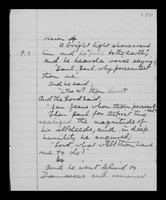 vision of
a bright light shone round
him and he fell to the earth,
9.3 and he heard a voice saying
"Saul, Saul, why persecutest
thou me"
And he said;
"Who art thou Lord"
And the Lord said
"I am Jesus whom thou persecutest"
Then Paul for the first time
realized the magnitude of
his ill deeds, and, in deep
humility he enquired;
"Lord what wilt thou have
me to do"?
And he went blind to
Damascus and remained